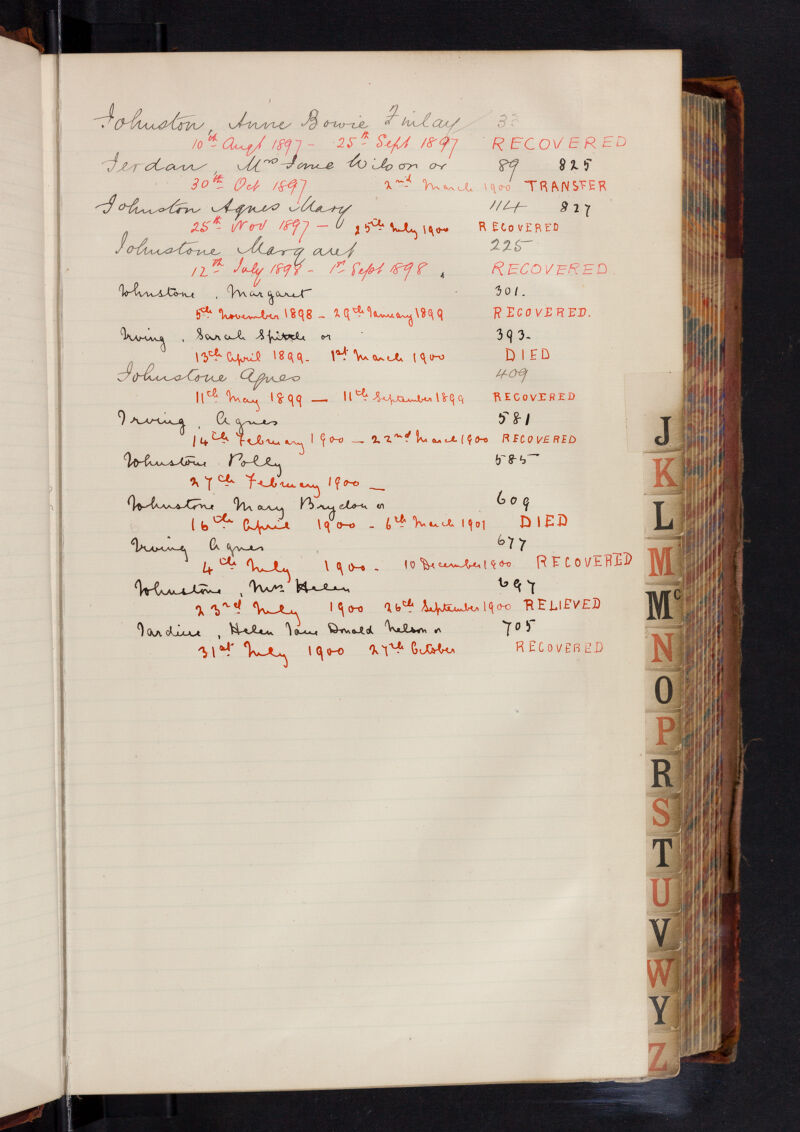 Johnston, Anne Bowie Finlay 33
10th Augt 1897 - 25th Sept 1897 RECOVERED
Jerdan Mrs Jane Wilson or 89 825
30th Oct 1897 2nd March 1900 TRANSFER
Johnston Agnes Mary 114 827
25th Nov 1897 - 25th July 1900 RECOVERED
Johnstone Margaret 225
12th July 1898 - 1st Sept 1898 RECOVERED
Johnstone, Margaret 301.
5th November 1898 - 29th January 1899 RECOVERED.
Irving, Sarah Spittle or 393.
13th April 1899. 1st March 1900 DIED
Johnstone Agnes 409
11th May 1899 — 11th September 1899 RECOVERED
Irving, Agnes 581
14th February 1900 — 22nd March 1900 RECOVERED
Johnstone Polly 585
27th February 1900 —
Johnstone Mary Brydon or 609
16th April 1900 - 6th March 1901 DIED
Irving Agnes 677
4th July 1900 - 10 December 1900 RECOVERED
Johnstone, Mrs Helen 697
23rd July 1900 26th September 1900 RELIEVED
Jardine, Helen Jane Donald Nelson or 705
31st July 1900 27th October RECOVERED
J
K
L
M
Mc
N
O
P
R
S
T
U
V
W
Y
Z